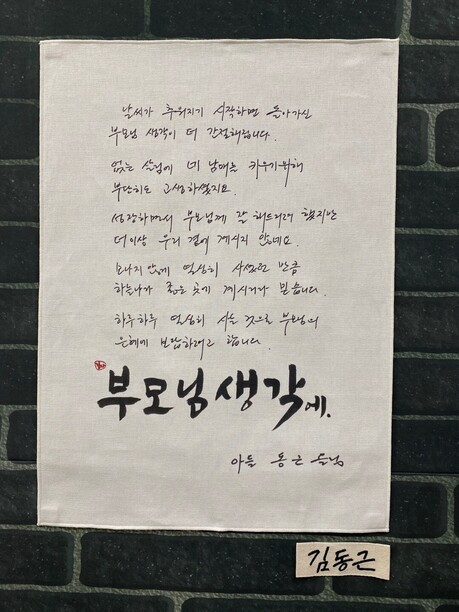 날씨가 추워지기 시작하면 돌아가신
부모님 생각이 더 간절해집니다.
없는 살림에 네 남매를 키우기위해
부단히도 고생하셨지요.
성장하면서 부모님께 잘 해드리려 했지만
더이상 우리 곁에 계시지 않네요.
모나지 않게 열심히 사셨던 만큼
하늘나라 좋은 곳에 계시거라 믿습니다.
하루하루 열심히 사는 것으로 부모님의
은혜에 보답하려고 합니다.
부모님 생각에.
아들 동근 드림
김동근